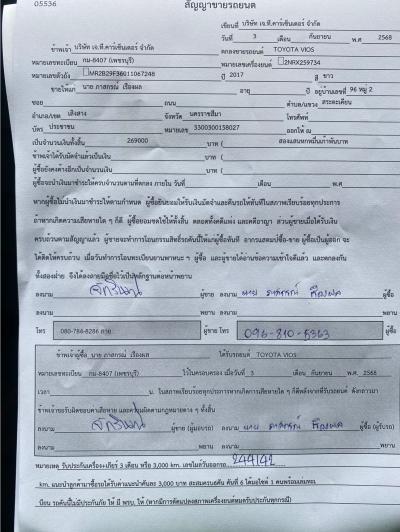 05536
สัญญาขายรถยนต์
เขียนที่ บริษัท เจ.ที.คาร์เซ็นเตอร์ จำกัด
วันที่ 3 เดือน กันยายน พ.ศ 2568
ข้าพเจ้า บริษัท เจ.ที.คาร์เซ็นเตอร์ จำกัด ตกลงขายรถยนต์ TOYOTA VIOS
หมายเลขทะเบียน กม-8407 (เพชรบุรี) หมายเลขเครื่องยนต์ 2NRX259734
หมายเลขตัวถัง MR2B29F36011067248 ปี 2017 สี ขาว
ขายให้แก่ นาย ภาสกรณ์ เรืองผล อายุ ปี อยู่บ้านเลขที่ 96 หมู่ 2
ซอย ถนน ตำบล/แขวง สระตะเคียน
อำเภอ/เขต เสิงสาง จังหวัด นครราชสีมา โทรศัพท์
บัตร ประชาชน หมายเลข 3300300158027 ออกให้ ณ
เป็นจำนวนเงินทั้งสิ้น 269000 บาท ( สองแสนหกหมื่นเก้าพันบาท
ข้าพเจ้าได้รับมัดจำแล้วเป็นเงิน บาท (
ผู้ซื้อยังคงค้างอีกเป็นจำนวนเงิน บาท (
ผู้ซื้อจะนำเงินมาชำระให้ครบจำนวนตามที่ตกลง ภายใน วันที่ เดือน พ.ศ
หากผู้ซื้อไม่นำเงินมาชำระให้ตามกำหนด ผู้ซื้อยินยอมให้ริบเงินมัดจำและคืนรถให้ทันทีในสภาพเรียบร้อยทุกประการ
ถ้าหากเกิดความเสียหายใด ๆ ก็ดี ผู้ซื้อยอมชดใช้ให้ทั้งสิ้น ตลอดทั้งคดีแพ่ง และคดีอาญา ส่วนผู้ขายเมื่อได้รับเงิน
ครบถ้วนตามสัญญาแล้ว ผู้ขายจะทำการโอนกรรมสิทธิ์รถคันนี้ให้แก่ผู้ซื้อทันที
ทั้งสองฝ่าย จึงได้ลงลายมือชื่อไว้เป็นหลักฐานต่อหน้าพยาน
ลงนาม ผู้ขาย ลงนาม นาย ภาสกรณ์ เรืองผล ผู้ซื้อ
ลงนาม พยาน ลงนาม พยาน
โทร 080-786-8286 ผู้ขาย โทร 096-810-5363 ผู้ซื้อ
ข้าพเจ้าผู้ซื้อ นาย ภาสกรณ์ เรืองผล ได้รับรถยนต์ TOYOTA VIOS
หมายเลขทะเบียน กม-8407 (เพชรบุรี) ไว้ในครอบครอง เมื่อวันที่ 3 เดือน กันยายน พ.ศ. 2568
เวลา น. ในสภาพเรียบร้อยทุกประการหากเกิดการเสียหายใด ๆ ก็ดีหลังจากที่รับรถยนต์ ดังกล่าวมา
ข้าพเจ้าขอรับผิดชอบค่าเสียหาย และความผิดตามกฎหมายต่าง ๆ ทั้งสิ้น
ลงนาม ผู้ขาย (ผู้มอบรถ) ลงนาม นาย ภาสกรณ์ เรืองผล ผู้ซื้อ (ผู้รับมอบรถ)
ลงนาม พยาน ลงนาม พยาน
หมายเหตุ รับประกันเครื่อง+เกียร์ 3 เดือน หรือ 3,000 km. เลขไมล์วันออกรถ 244142
km. แนะนำลูกค้ามาซื้อรถได้รับค่าแนะนำคันละ 3,000 บาท สะสมครบ